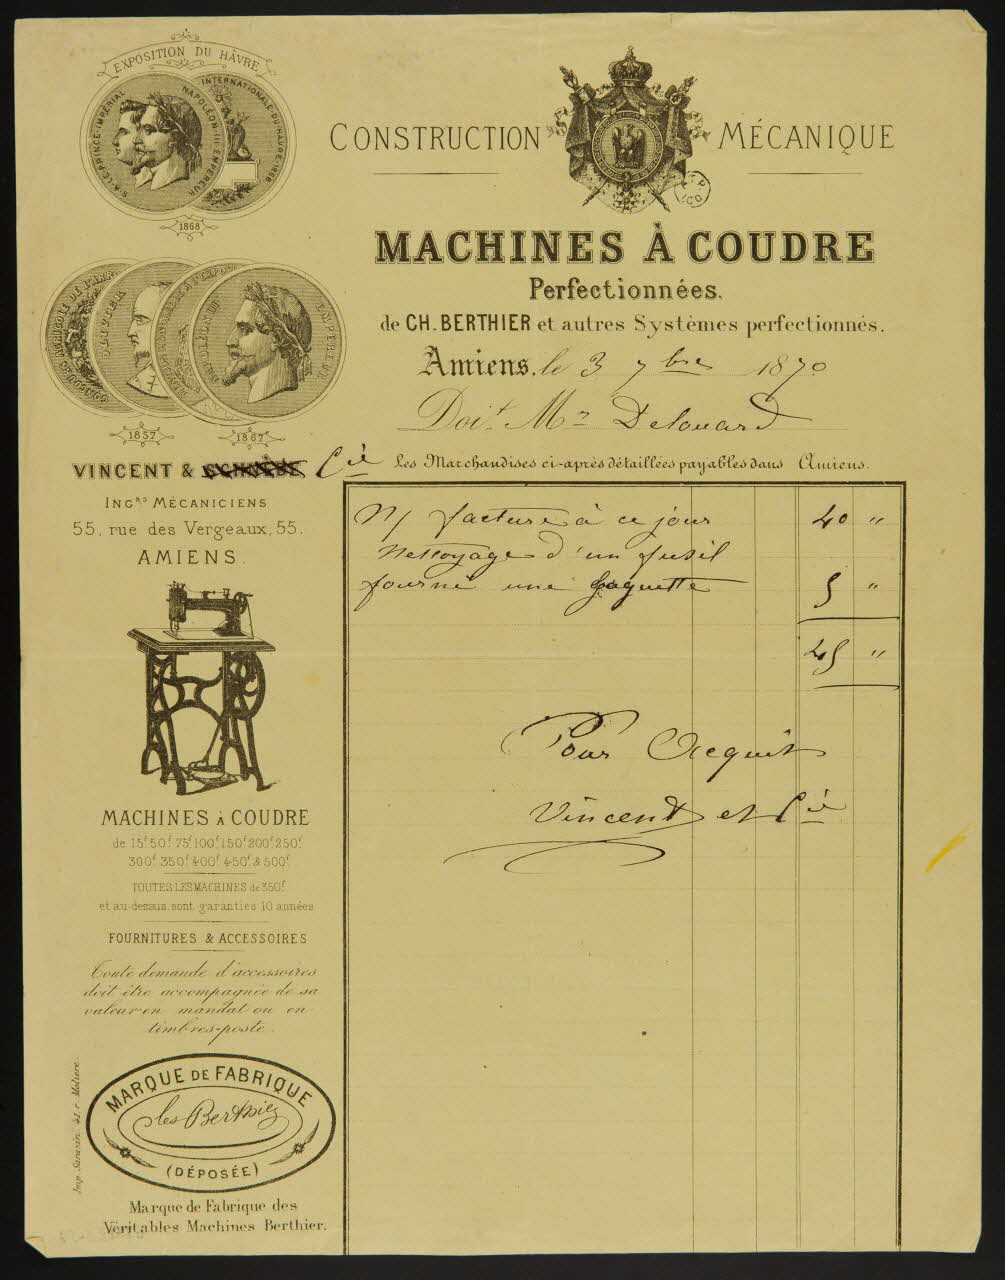 EXPOSITION DU HÂVRE
S.A. LE PRINCE IMPÉRIAL
NAPOLÉON III EMPEREUR
INTERNATIONALE DU HAVRE 1868
1868
OLIVIER
NAPOLEON III
EMPEREUR
1857
1867
CONSTRUCTION MÉCANIQUE
MACHINES À COUDRE
Perfectionnées.
de CH. BERTHIER et autres Systèmes perfectionnés.
Amiens, le 3 7bre 1870
Doit Mr Delouard
VINCENT & Cie
Les Marchandises ci-après détaillées payables dans Amiens.
INGRS MÉCANICIENS
55, rue des Vergeaux, 55.
AMIENS.
N/ facture à ce jour 40 "
Nettoyage d'un fusil
fourni une baguette 5 "
45 "
Pour Acquit
Vincent et Cie
MACHINES À COUDRE
de 15f 50f 75f 100f 150f 200f 250f
300f 350f 400f 450f & 500f
TOUTES LES MACHINES de 350f
et au-dessus sont garanties 10 années
FOURNITURES & ACCESSOIRES
Toute demande d'accessoires
doit être accompagnée de sa
valeur en mandat ou en
timbres-poste.
MARQUE DE FABRIQUE
(DÉPOSÉE)
Marque de Fabrique des
Véritables Machines Berthier.
Imp. Sarazin, 41, r. Molière.